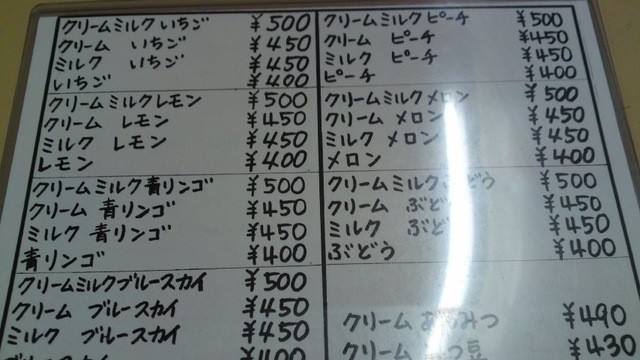 クリームミルクいちご ¥500
クリーム いちご ¥450
ミルク いちご ¥450
いちご ¥400
クリームミルクレモン ¥500
クリーム レモン ¥450
ミルク レモン ¥450
レモン ¥400
クリームミルク青リンゴ ¥500
クリーム 青リンゴ ¥450
ミルク 青リンゴ ¥450
青リンゴ ¥400
クリームミルクブルースカイ ¥500
クリーム ブルースカイ ¥450
ミルク ブルースカイ ¥450
ブルースカイ ¥400
クリームミルクピーチ ¥500
クリーム ピーチ ¥450
ミルク ピーチ ¥450
ピーチ ¥400
クリームミルクメロン ¥500
クリーム メロン ¥450
ミルク メロン ¥450
メロン ¥400
クリームミルクぶどう ¥500
クリーム ぶどう ¥450
ミルク ぶどう ¥450
ぶどう ¥400
クリーム あんみつ ¥490
クリーム ¥430